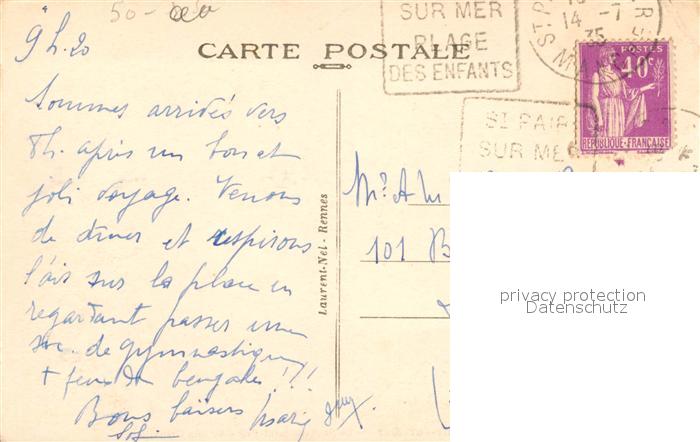 50-
9 h. 20
CARTE POSTALE
SUR MER
PLAGE
DES ENFANTS
14 -7
35
POSTES
40c
REPUBLIQUE-FRANÇAISE
ST PAIR
SUR MER
Sommes arrivés vers
8h. après un bon et
joli voyage. Venons
de diner et respirons
l'air sur la place en
regardant passer une
de gymnastique
+ feux de bengale!!!
Bons baisers
Laurent-Nel - Rennes
101 B
privacy protection
Datenschutz